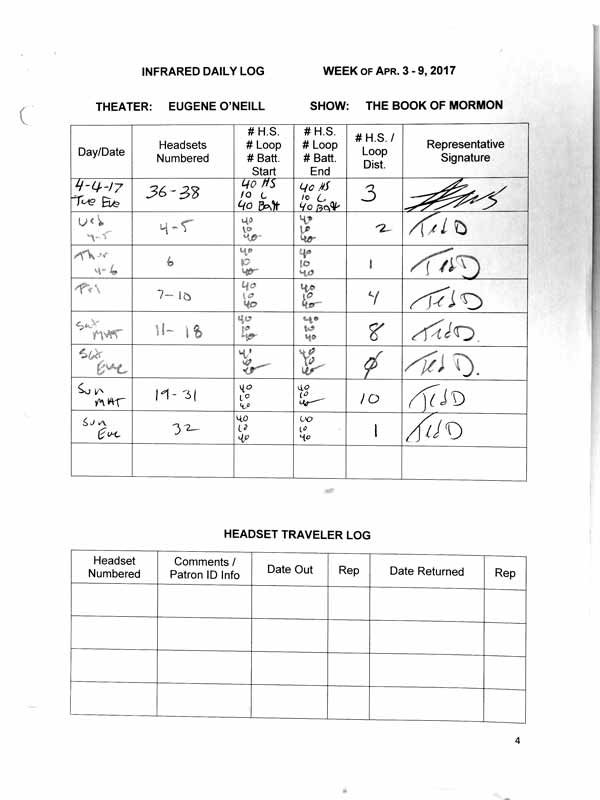 INFRARED DAILY LOG WEEK OF APR. 3 - 9, 2017
THEATER: EUGENE O'NEILL SHOW: THE BOOK OF MORMON
Day/Date Headsets Numbered # H.S. # Loop # Batt. Start # H.S. # Loop # Batt. End # H.S. / Loop Dist. Representative Signature
4-4-17 Tue Eve 36-38 40 HS 10 L 40 Batt 40 HS 10 L 40 Batt 3
Wed 4-5 4-5 40 10 40 40 10 40 2 Ted D
Thur 4-6 6 40 10 40 40 10 40 1 Ted D
Fri 7-10 40 10 40 40 10 40 4 Ted D
Sat MAT 11-18 40 10 40 40 10 40 8 Ted D.
Sat Eve 40 40 0 Ted D.
Sun MAT 19-31 40 10 40 40 10 40 10 Ted D
Sun Eve 32 40 10 40 40 10 40 1 Ted D
HEADSET TRAVELER LOG
Headset Numbered Comments / Patron ID Info Date Out Rep Date Returned Rep
4